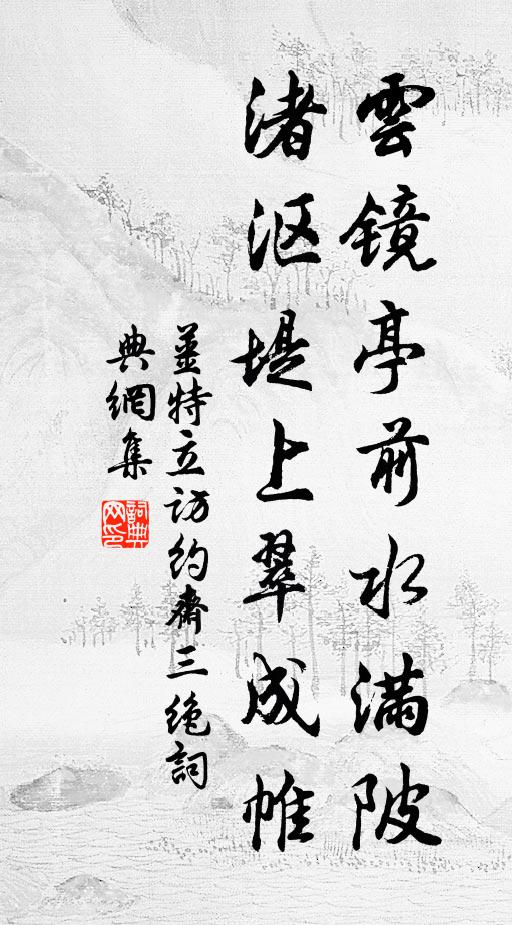 雲镜亭前水满陂
渚沤堤上翠成帷
姜特立访约斋三绝詞
典網集
詞典網印